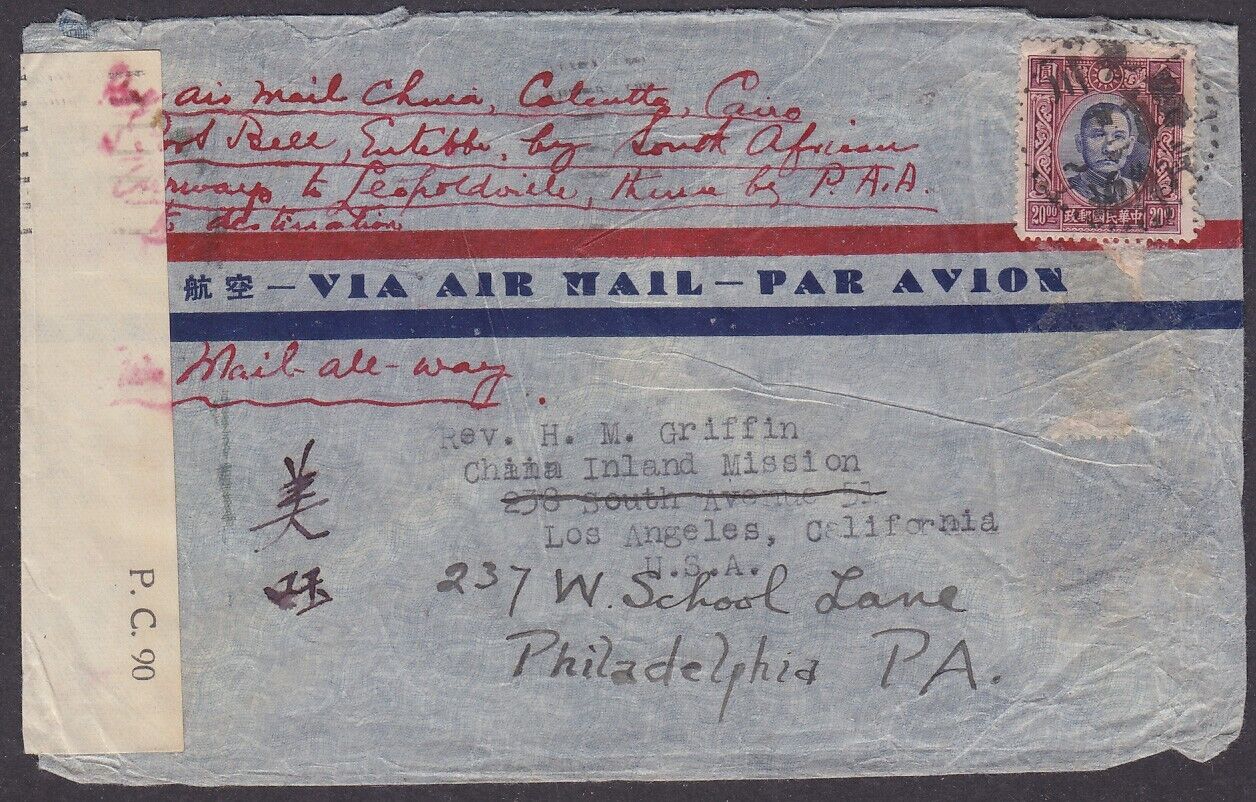 air mail China, Calcutta, Cairo
Bell, Entebbe, by South African
to Leopoldville, thence by P.A.A.
destination
圓
20 00 政郵國民華中 20 00
航空 — VIA AIR MAIL — PAR AVION
Mail-all-way.
Rev. H. M. Griffin
China Inland Mission
238 South Avenue 51
Los Angeles, California
U.S.A.
237 W. School Lane
Philadelphia PA.
美
P. C. 90